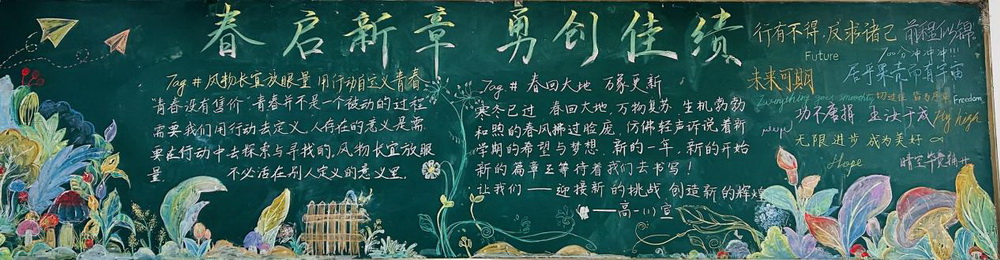 春启新章 勇创佳绩
Tag # 风物长宜放眼量 用行动自定义青春
"青春没有售价" 青春并不是一个被动的过程
需要我们用行动去定义.人存在的意义是需
要在行动中去探索与寻找的.风物长宜放眼
量. 不必活在别人定义的意义里.
Tag # 春回大地 万象更新
寒冬已过 春回大地 万物复苏 生机勃勃
和煦的春风拂过脸庞,仿佛轻声诉说着新
学期的希望与梦想.新的一年,新的开始
新的篇章正等待着我们去书写!
让我们——迎接新的挑战 创造新的辉煌
——高一·川 宣
行有不得,反求诸己
前程似锦
Future
700分冲冲冲!!!
未来可期
Freedom
功不唐捐 玉汝于成
Fly high
无限进步 成为美好 ∞
Hope